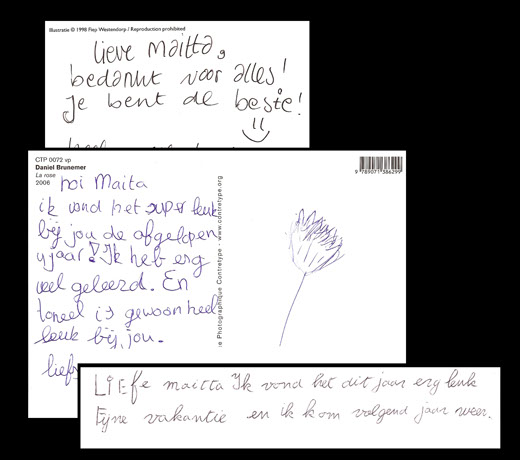 Illustratie © 1998 Fiep Westendorp / Reproduction prohibited
lieve maitta,
bedankt voor alles!
Je bent de beste!
CTP 0072 vp
Daniel Brunemer
La rose
2006
hoi Maita
ik vond het super leuk
bij jou de afgelopen
4 jaar! Ik heb erg
veel geleerd. En
toneel is gewoon heel
leuk bij jou.
liefs
9 789071 386299
ie Photographique Contretype - www.contretype.org
LIEfe maitta Ik vond het dit jaar erg leuk
Fijne vakantie en ik kom volgend jaar weer.